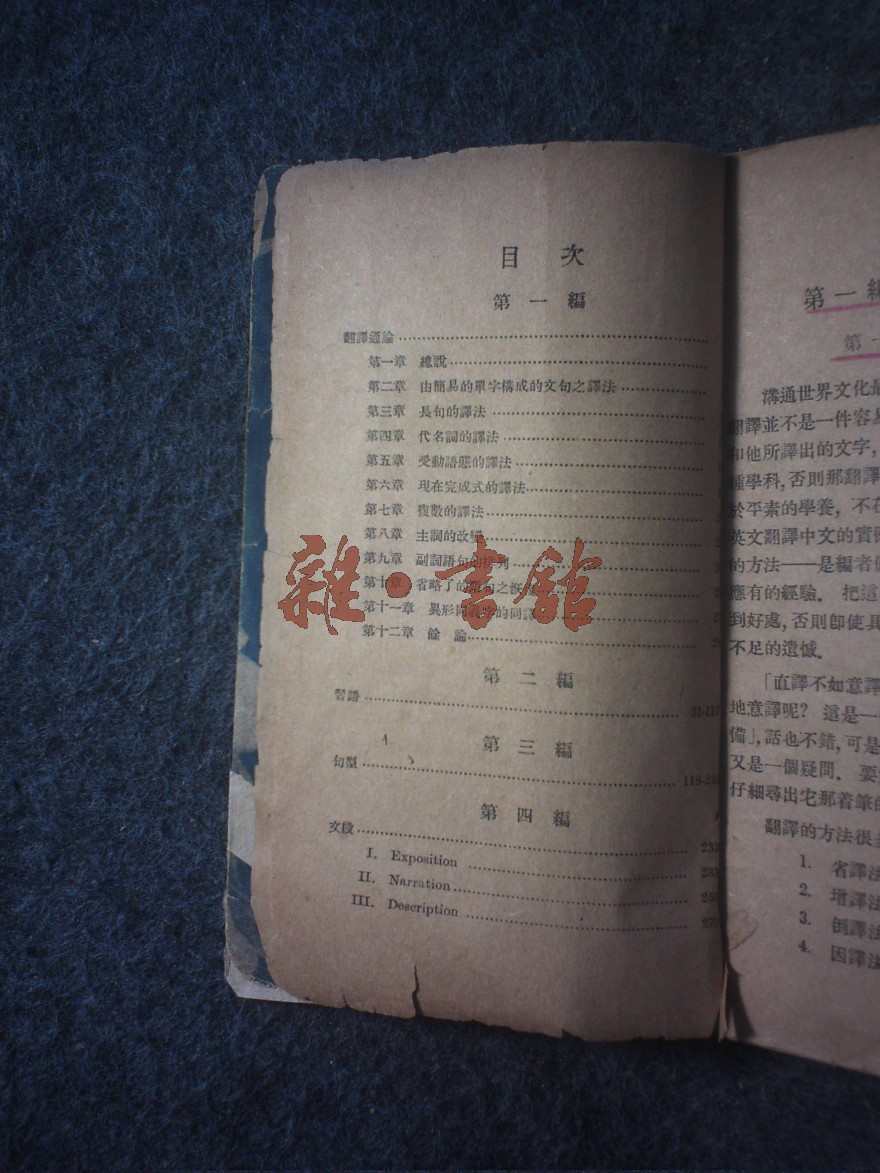 目 次
第 一 編
翻譯通論
第一章 總說
第二章 由簡易的單字構成的文句之譯法
第三章 長句的譯法
第四章 代名詞的譯法
第五章 受動語態的譯法
第六章 現在完成式的譯法
第七章 複數的譯法
第八章 主詞的改變
第九章 副詞語句的排列
第十章 省略了的
第十一章 異形同 的同譯
第十二章 餘 論
第 二 編
習語
第 三 編
句型 118-
第 四 編
文段 232
I. Exposition
II. Narration
III. Description
雜·書館
第一編
第
溝通世界文化
翻譯並不是一件容
和他所譯出的文字,
種學科,否則那翻譯
於平素的學養, 不在
英文翻譯中文的實
的方法——是編者
應有的經驗. 把這
到好處,否則卽使具
不足的遺憾.
「直譯不如意譯
地意譯呢? 這是一
備」,話也不錯,可是
又是一個疑問. 要
仔細尋出它那着筆
翻譯的方法很
1. 省譯法
2. 增譯法
3. 倒譯法
4. 因譯法